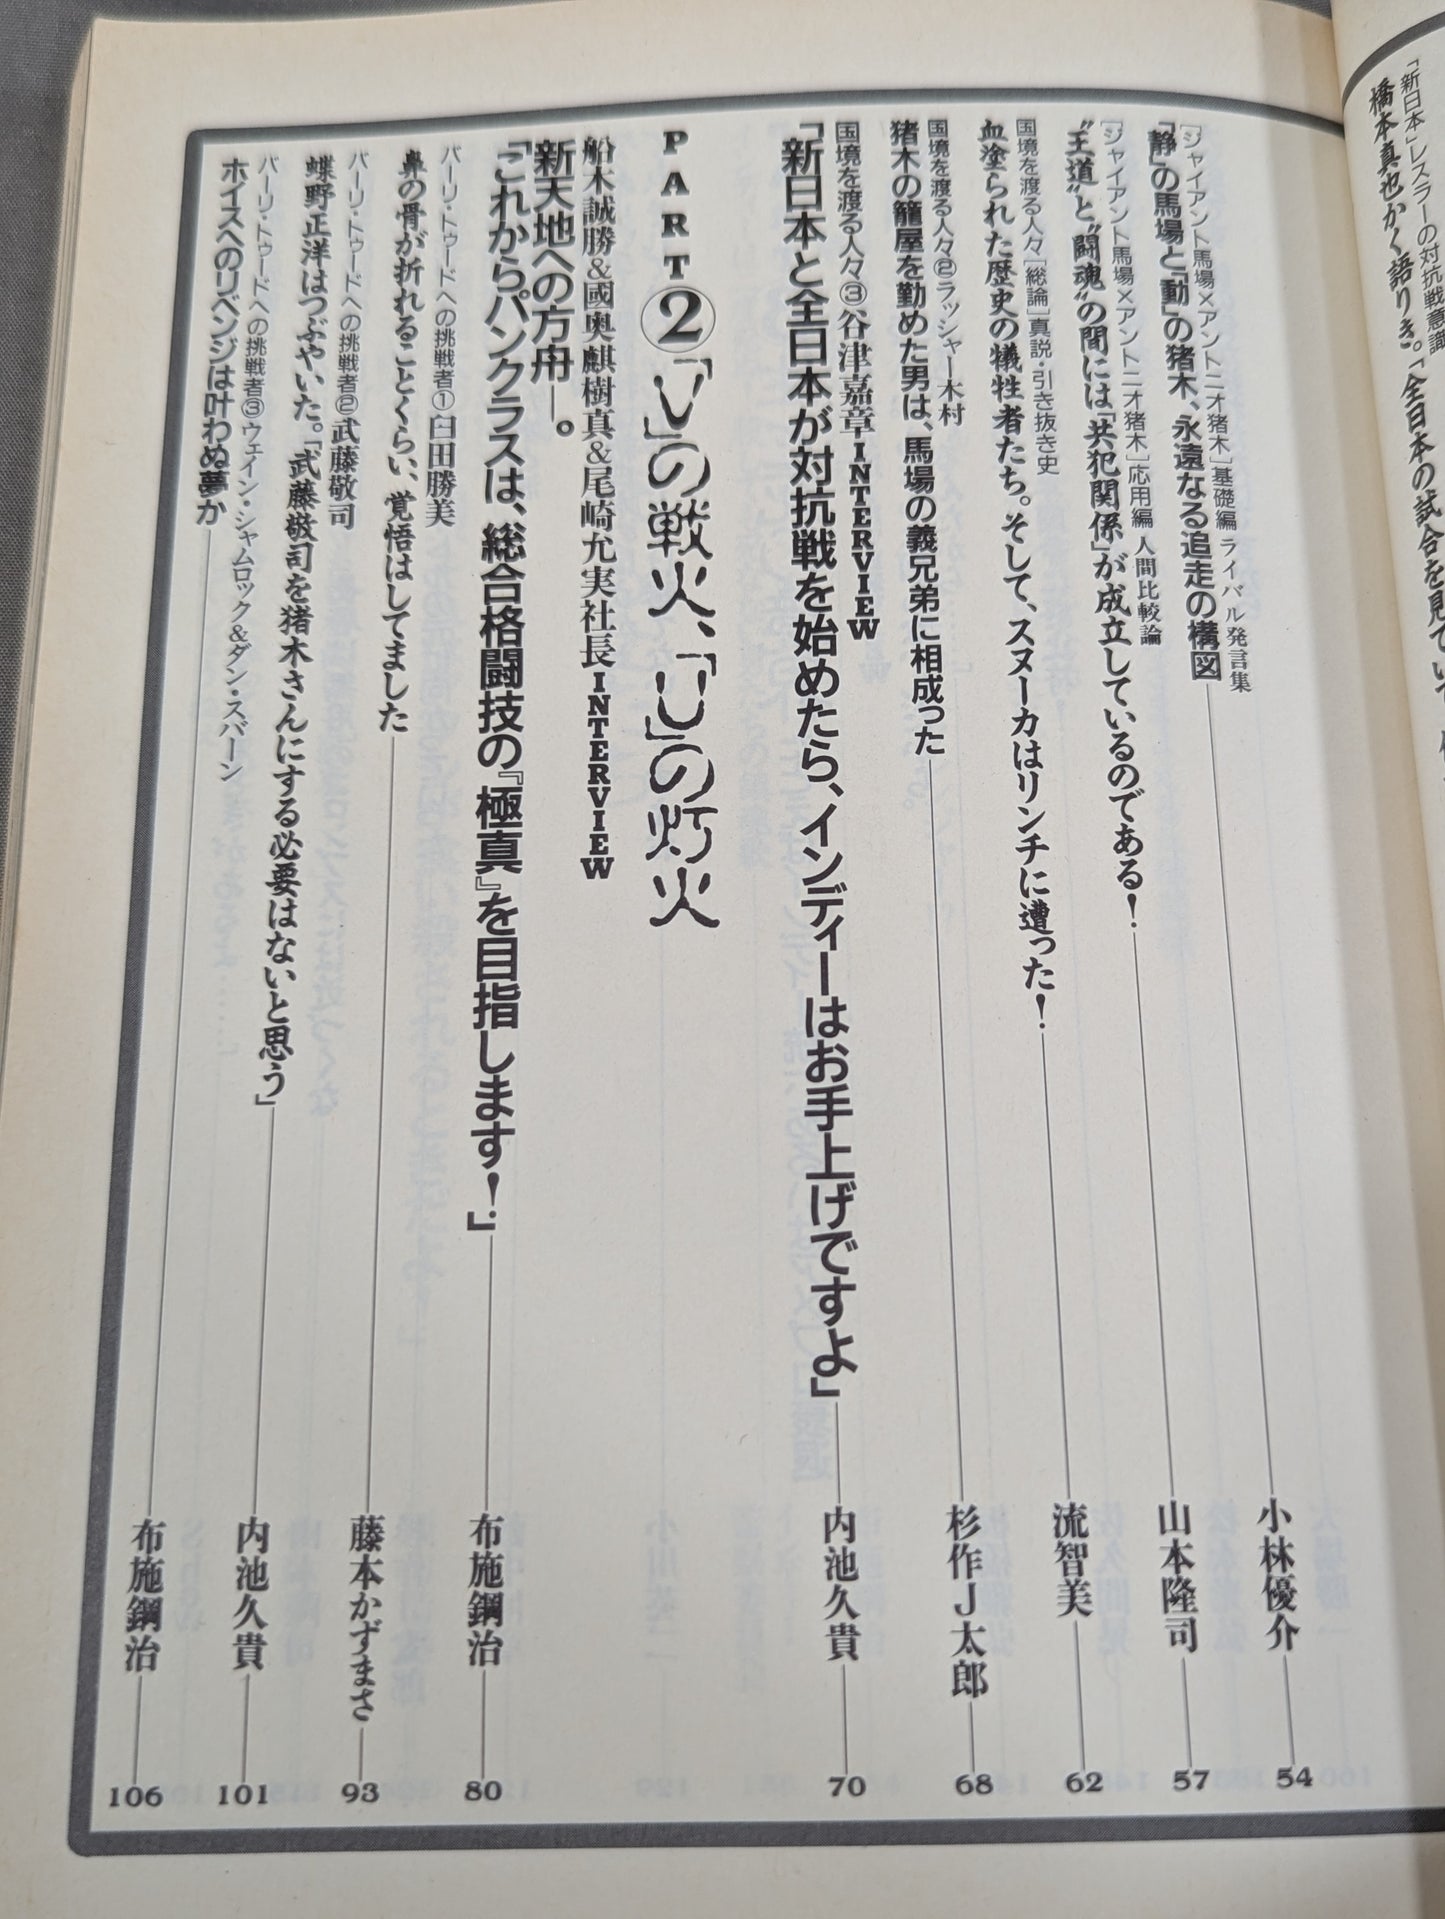 「新日本」レスラーの対抗戦意識
橋本真也かく語りき。「全日本の試合を見てい
[ジャイアント馬場×アントニオ猪木]基礎編 ライバル発言集
「静」の馬場と「動」の猪木、永遠なる追走の構図
小林優介
54
[ジャイアント馬場×アントニオ猪木]応用編 人間比較論
“王道”と“闘魂”の間には「共犯関係」が成立しているのである！
山本隆司
57
国境を渡る人々[総論]真説・引き抜き史
血塗られた歴史の犠牲者たち。そして、スヌーカはリンチに遭った！
流智美
62
国境を渡る人々②ラッシャー木村
猪木の籠屋を勤めた男は、馬場の義兄弟に相成った
杉作J太郎
68
国境を渡る人々③谷津嘉章INTERVIEW
「新日本と全日本が対抗戦を始めたら、インディーはお手上げですよ」
内池久貴
70
PART②「V」の戦火、「U」の灯火
船木誠勝&國奥麒樹真&尾崎允実社長INTERVIEW
新天地への方舟―。
「これからパンクラスは、総合格闘技の『極真』を目指します！」
布施鋼治
80
バーリ・トゥードへの挑戦者①臼田勝美
鼻の骨が折れることくらい、覚悟はしてました
藤本かずまさ
93
バーリ・トゥードへの挑戦者②武藤敬司
蝶野正洋はつぶやいた。「武藤敬司を猪木さんにする必要はないと思う」
内池久貴
101
バーリ・トゥードへの挑戦者③ウェイン・シャムロック&ダン・スバーン
ホイスへのリベンジは叶わぬ夢か
布施鋼治
106